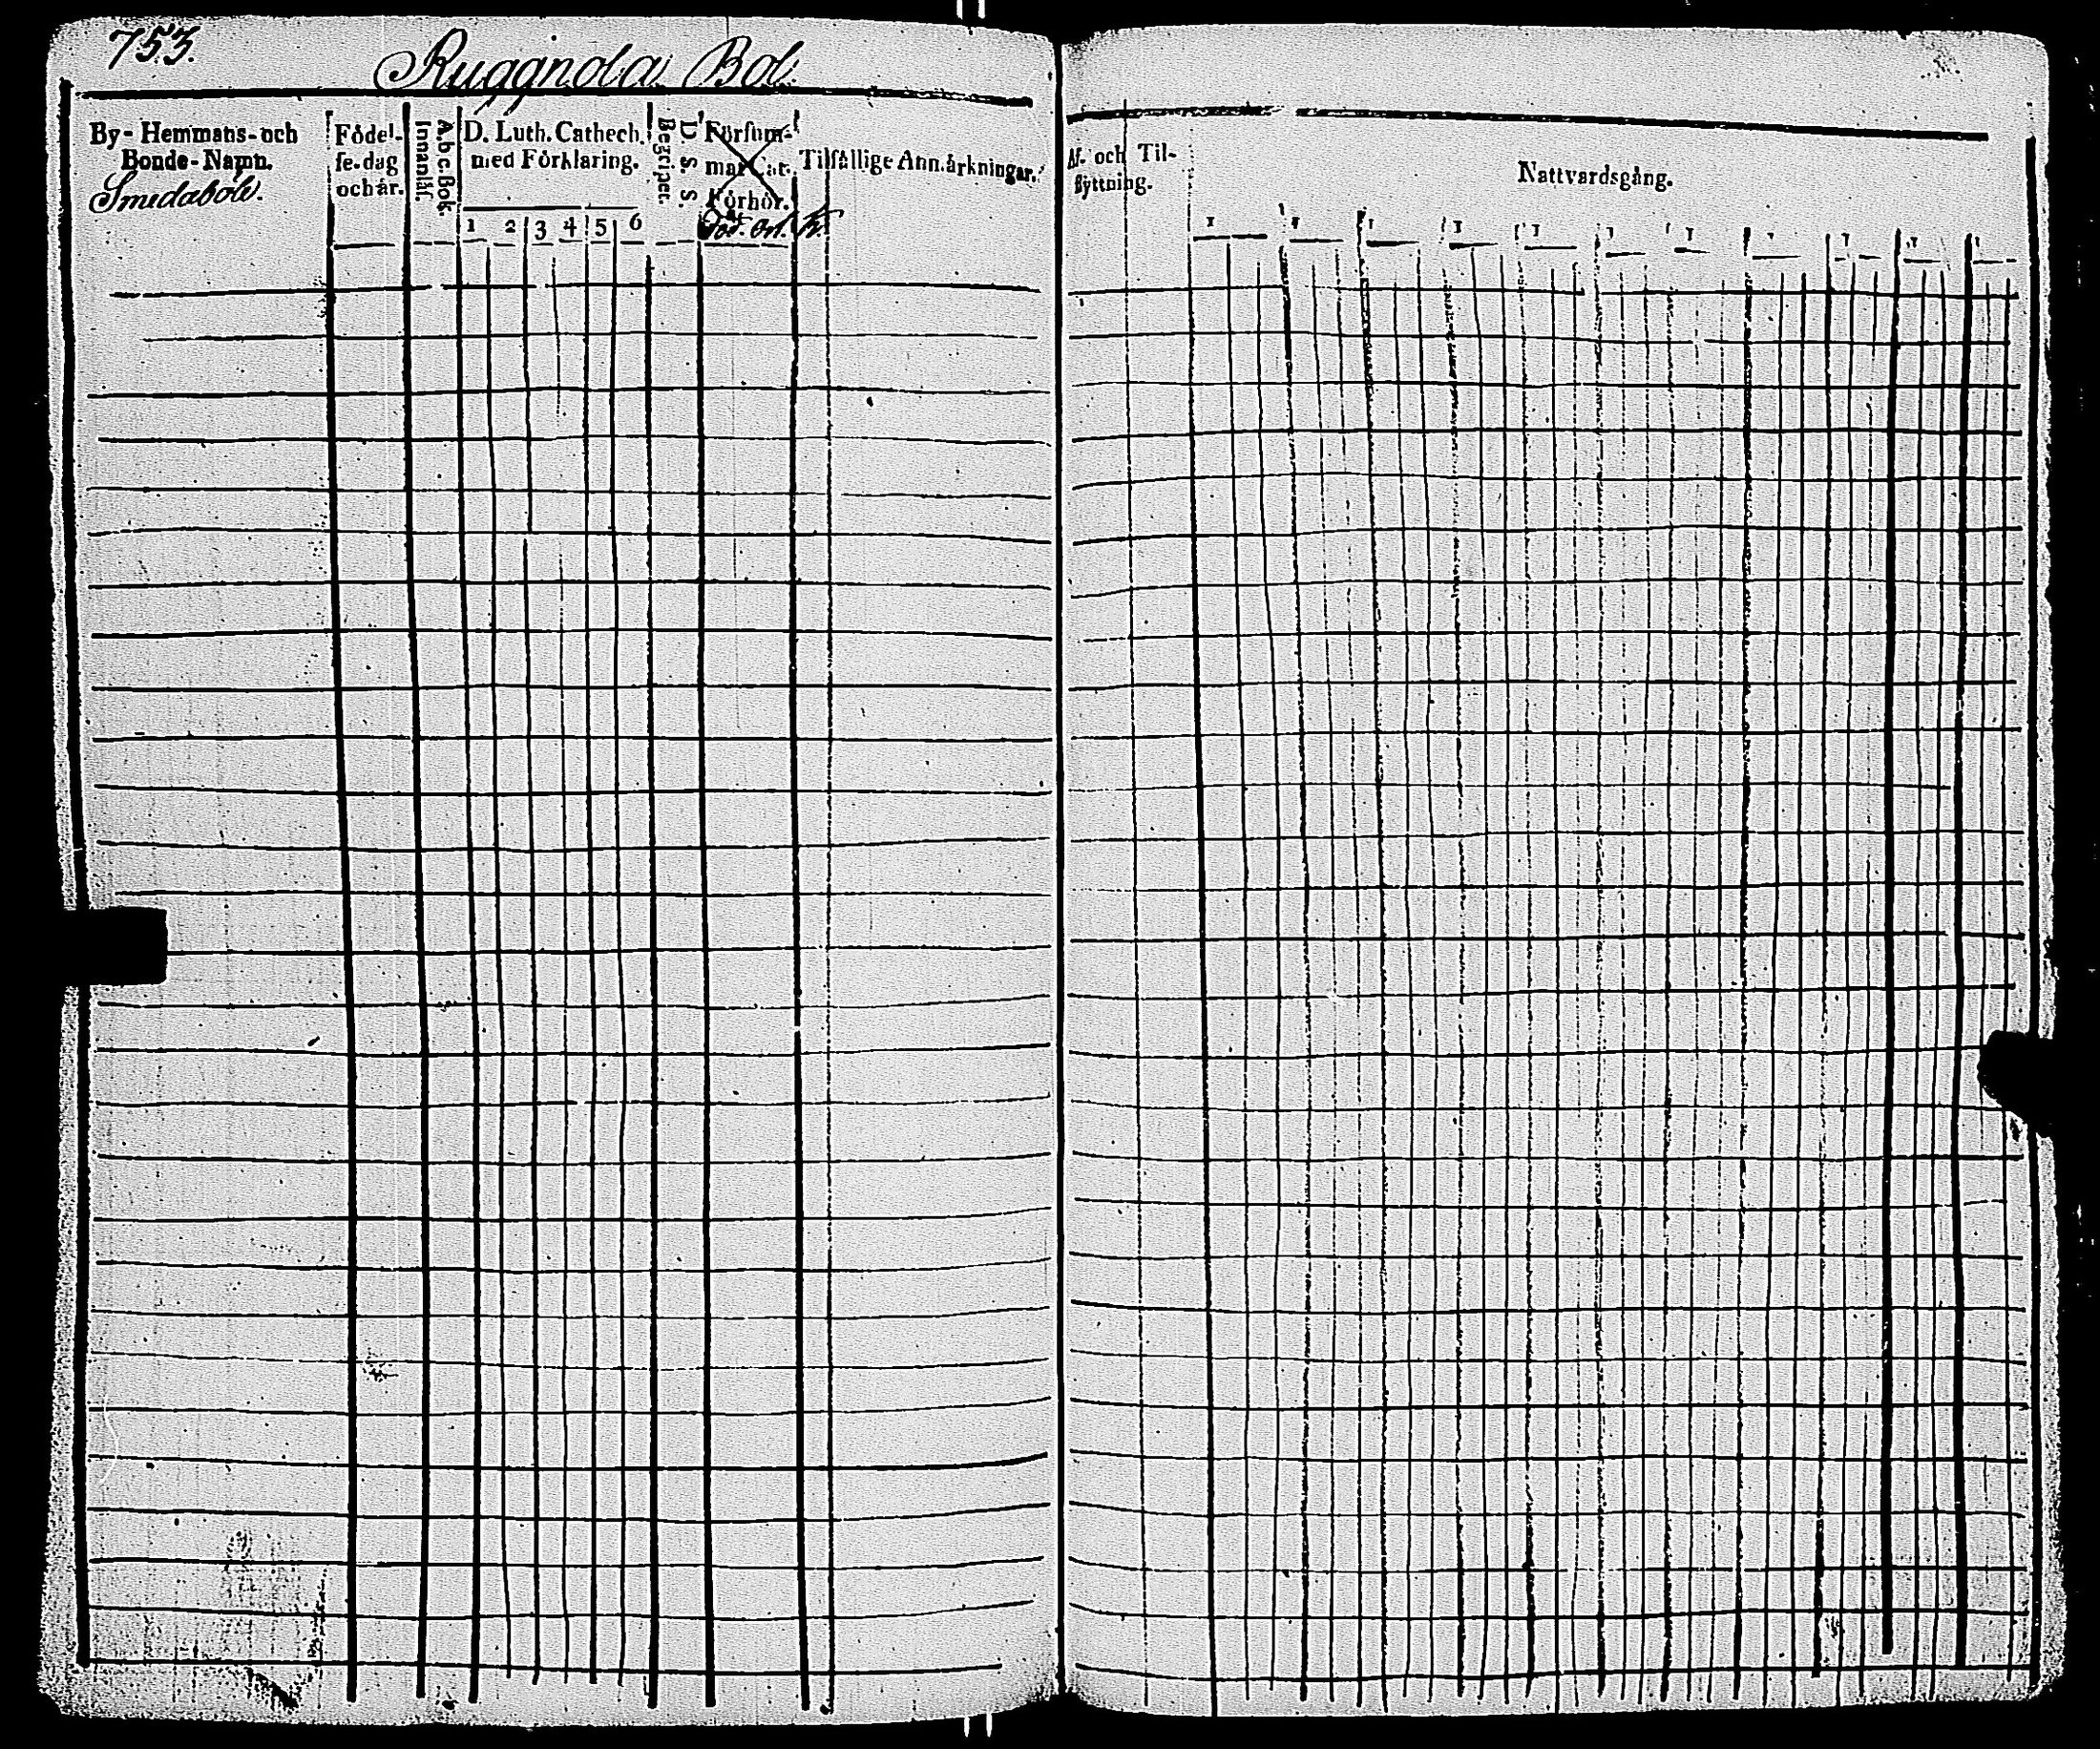 753.
Ruggnola Bol.
By- Hemmans- och
Bonde-Namn.
Smedabole.
Födel-
se-dag
och år.
A.b.c. Bok.
Innanläs.
D. Luth. Cathech.
med Förklaring.
1 2 3 4 5 6
D. S. S.
Begripet.
Försum-
mat Cat.
Förhör.
Tilfällige Anmärkningar.
Af- och Til-
flyttning.
Nattvardsgång.
1 1 1 1 1 1 1 1 1 1 1